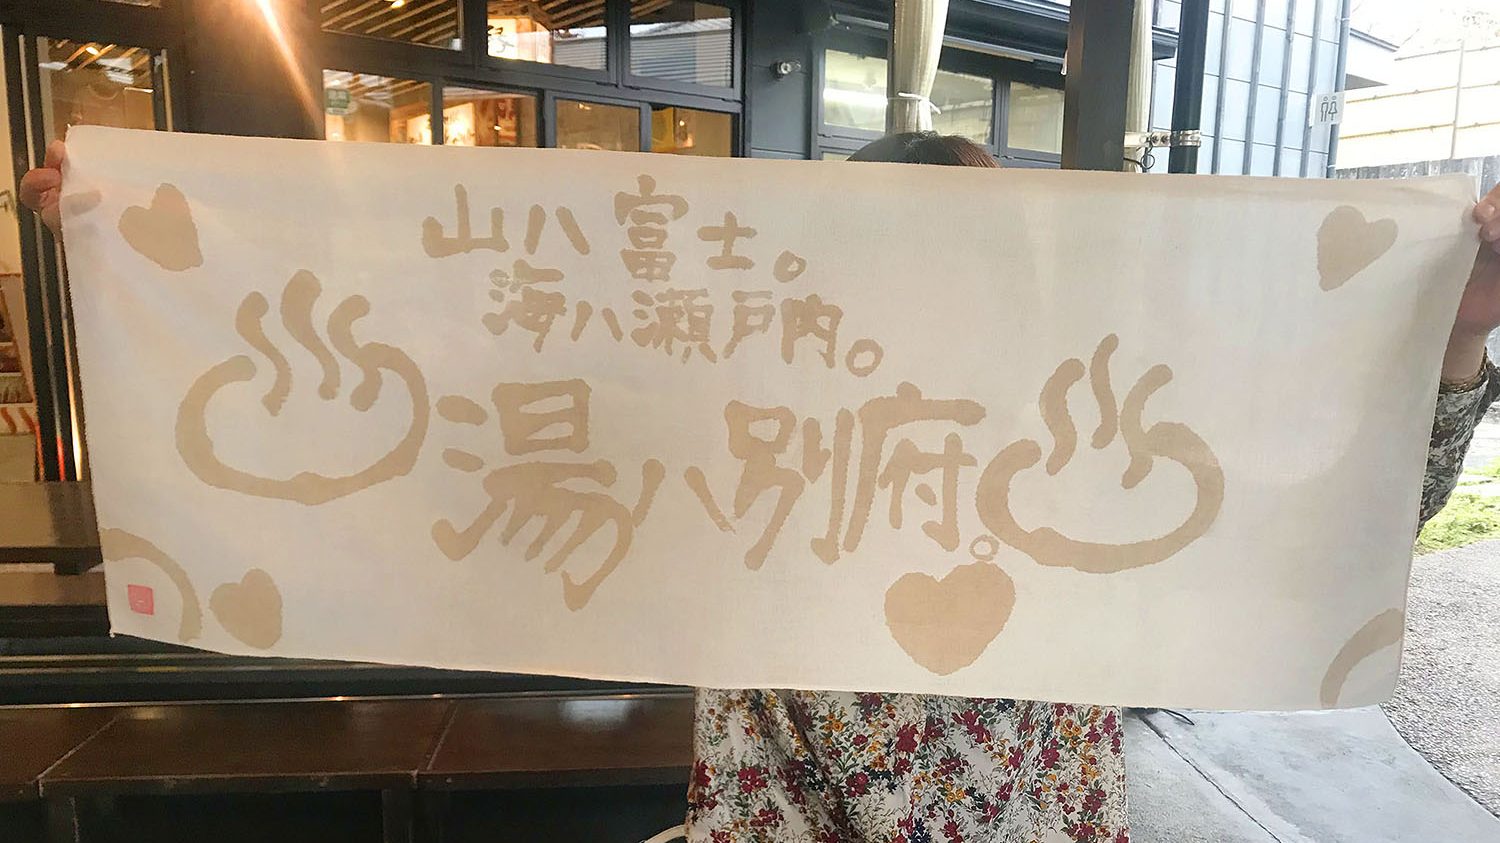 山ハ富士。
海ハ瀬戸内。
湯ハ別府。